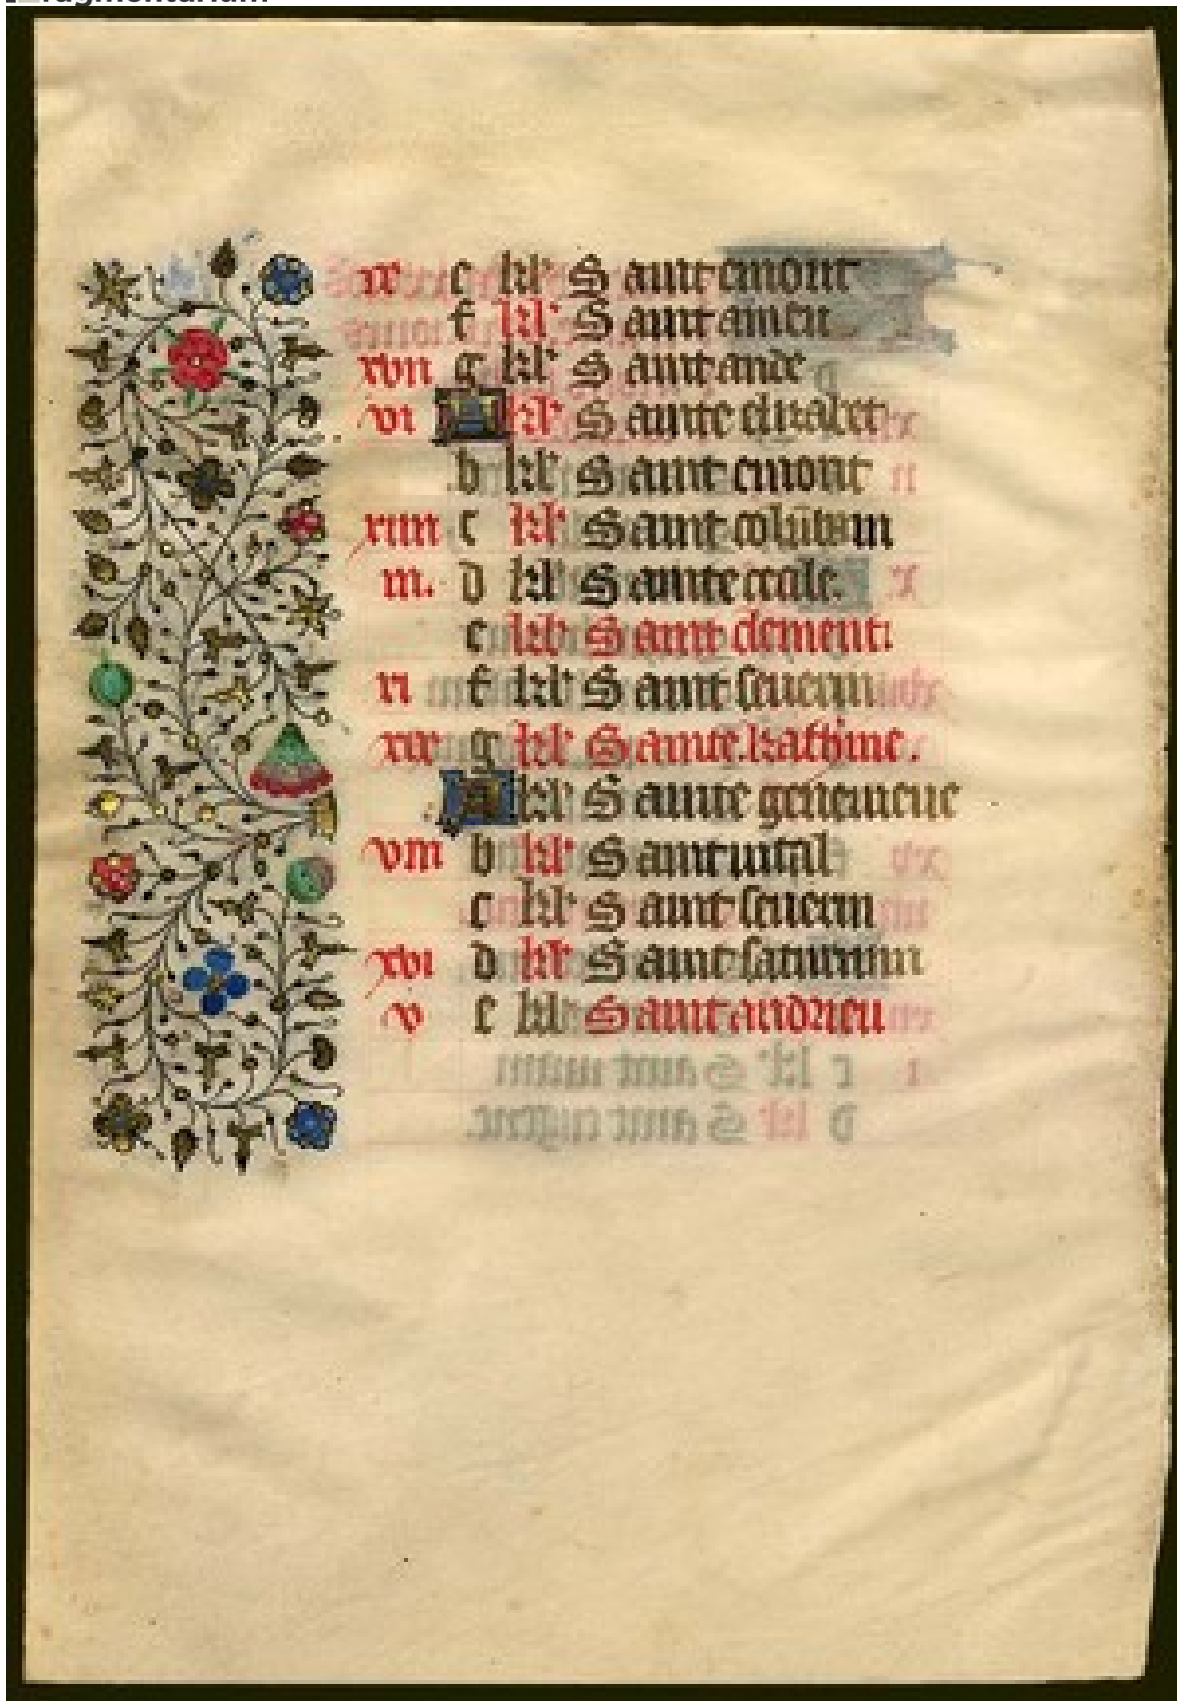 Fragmentarium
ix e kl' Saint emont
f kl' Saint amen
xvii g kl' Saint ande
vi A kl' Sainte elizabet
b kl' Saint emont
xiiii c kl' Saint colūbain
iii. d kl' Sainte cecile.
e kl' Saint clement.
xi f kl' Saint severin
xix g kl' Sainte katherine.
A kl' Sainte genevieve
viii b kl' Saint vital
c kl' Saint severin
xvi d kl' Saint saturnin
v e kl' Saint andrieu